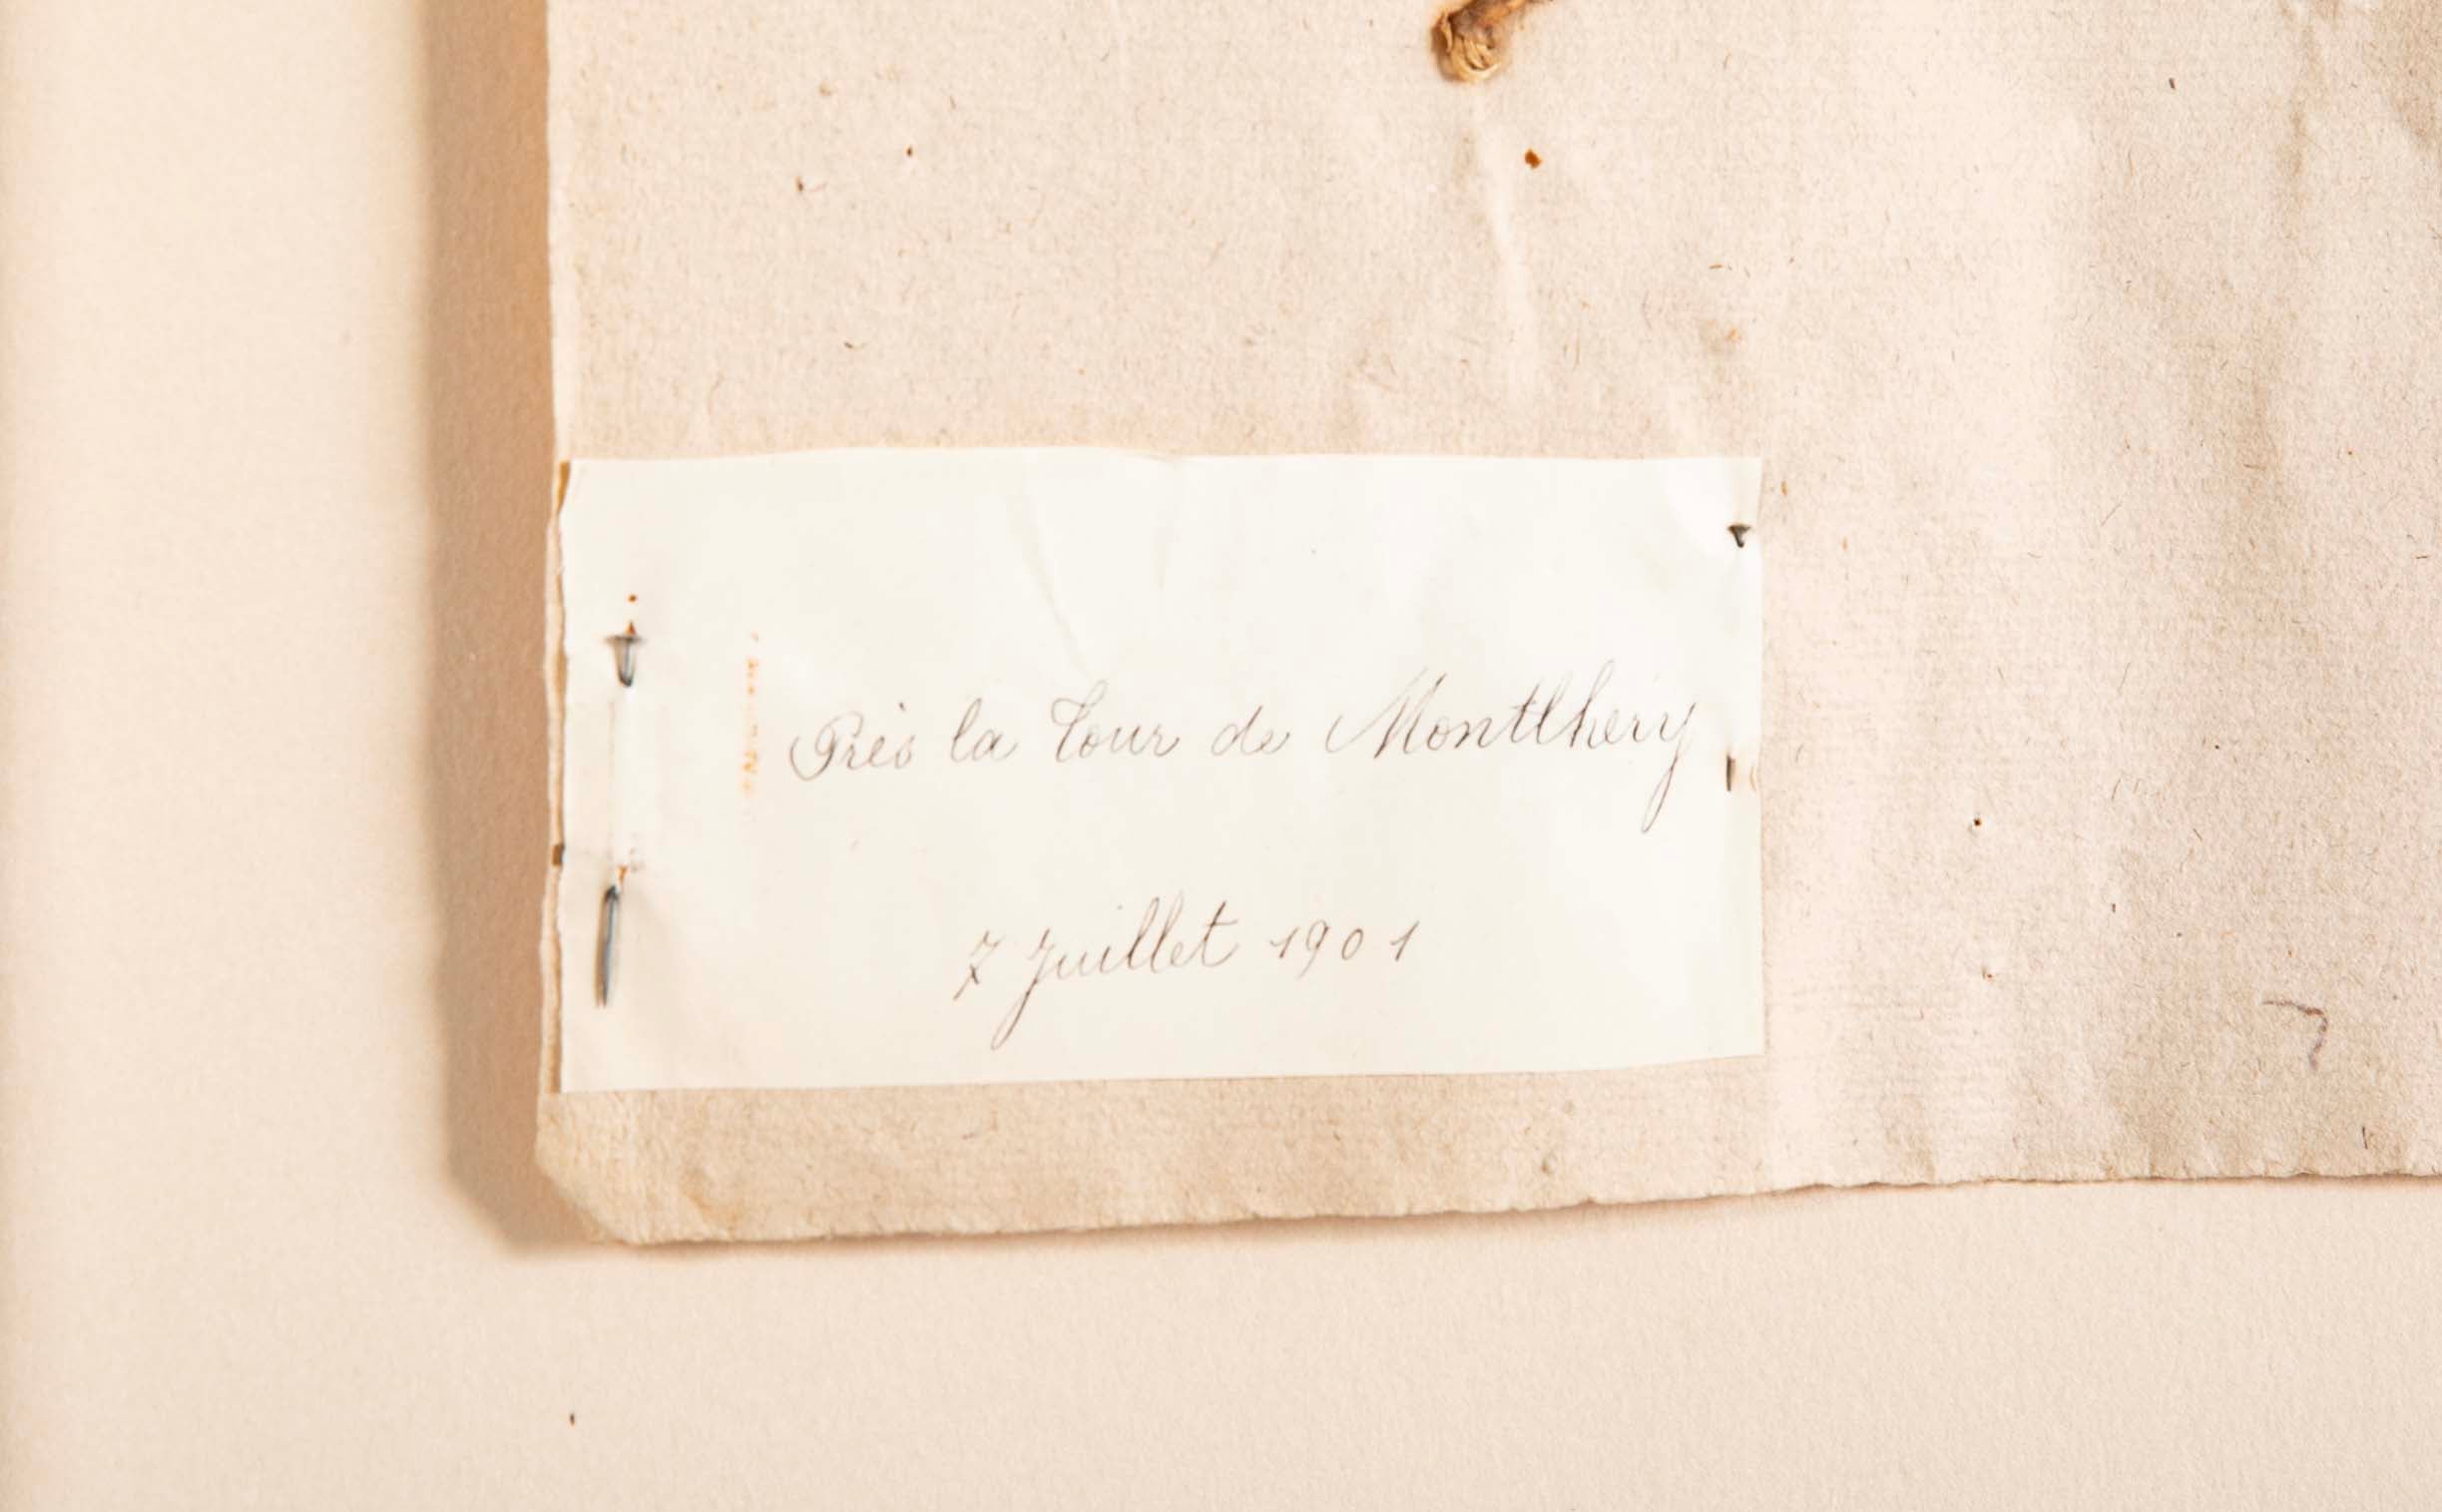 Près la Tour de Montlhery
7 Juillet 1901